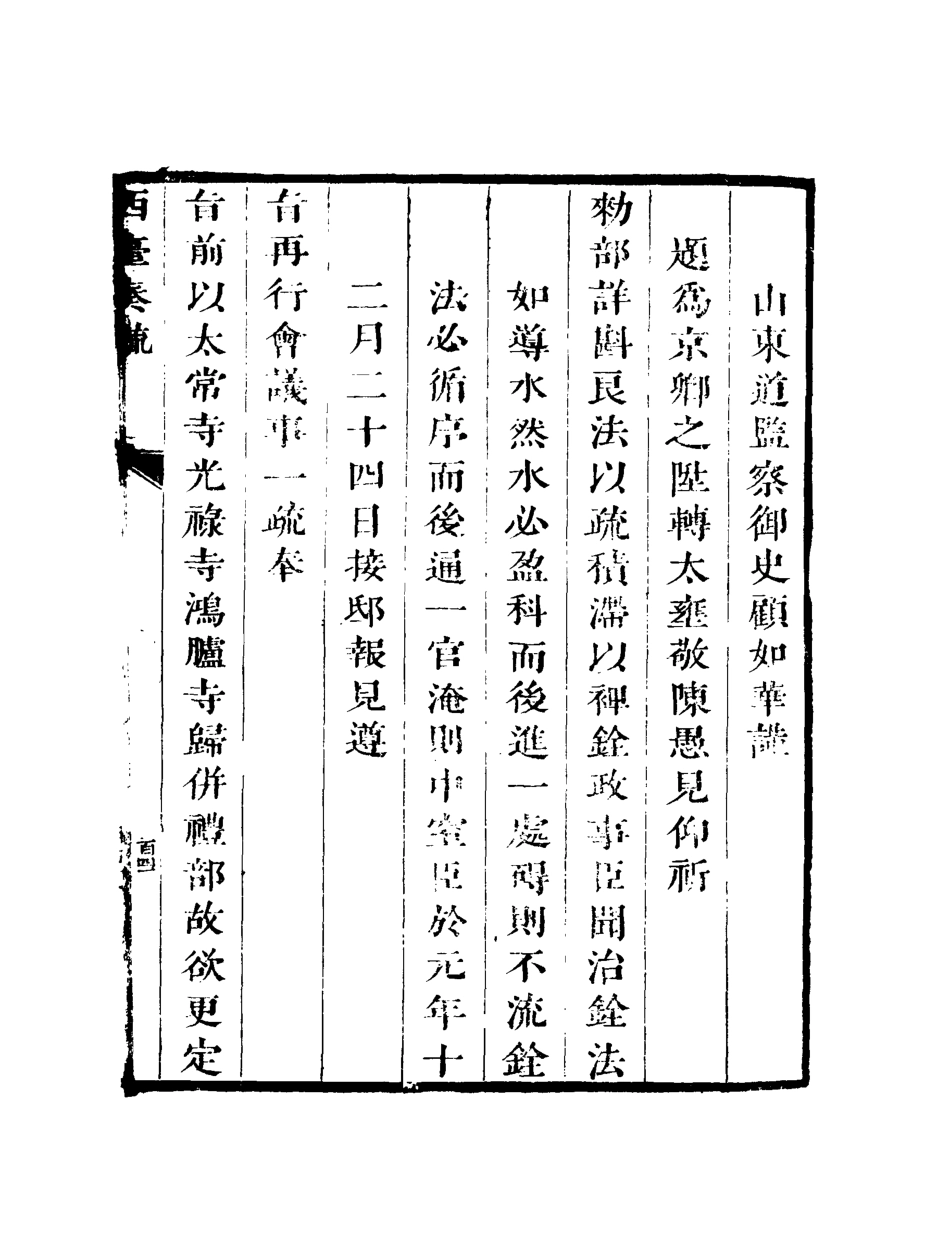 山東道監察御史顧如華謹
題爲京卿之陞轉太壅敬陳愚見仰祈
勅部詳斟良法以疏積滯以裨銓政事臣聞治銓法
如導水然水必盈科而後進一處碍則不流銓
法必循序而後通一官淹則中窒臣於元年十
二月二十四日接邸報見遵
旨再行會議事一疏奉
旨前以太常寺光祿寺鴻臚寺歸併禮部故欲更定
西臺奏疏
百四